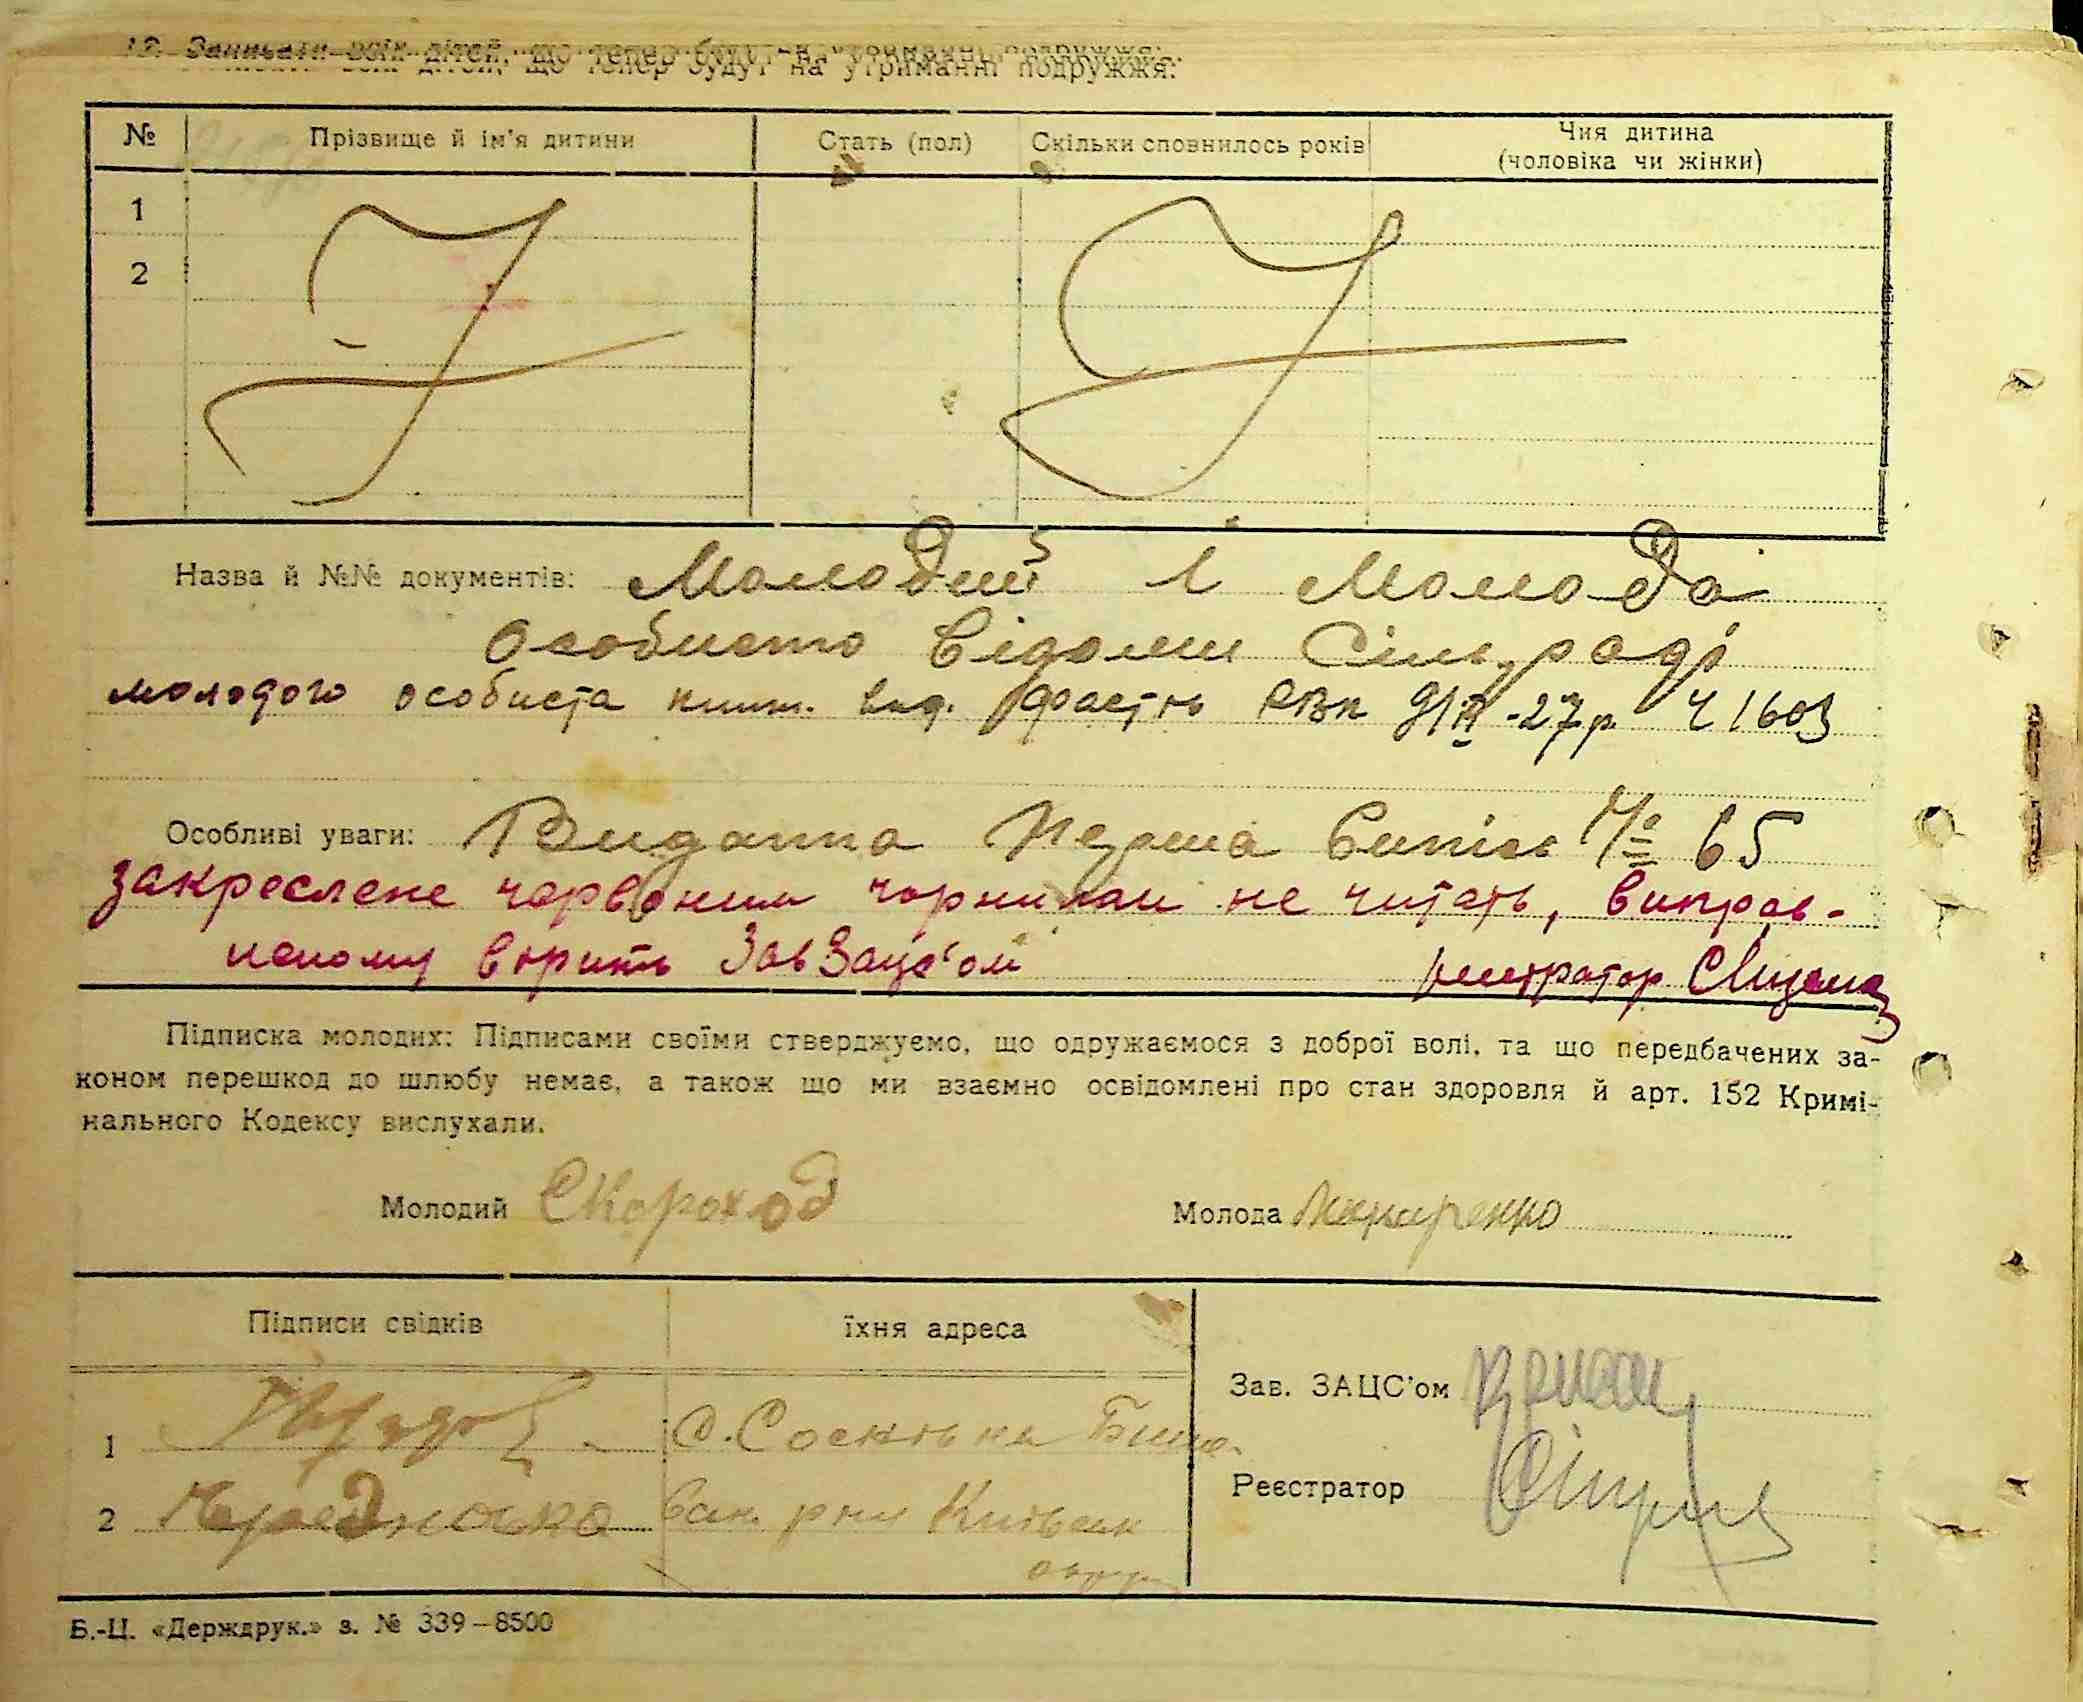 12. Записати всіх дітей, що тепер будут на утриманні подружжя:
№ Прізвище й ім'я дитини Стать (пол) Скільки сповнилось років Чия дитина (чоловіка чи жінки)
1
2
Назва й №№ документів: Молодий і Молода
Особисто відоми Сільраді
молодого особиста книж. вид. РВК 27р Ч 1603
Особливі уваги: Видатна Перша Випись № 65
закреслене червоним чорнилом не читать, виправ-
неному вірить ЗавЗацс'ом реєстратор
Підписка молодих: Підписами своїми стверджуємо, що одружаємося з доброї волі, та що передбачених за-
коном перешкод до шлюбу немає, а також що ми взаємно освідомлені про стан здоровля й арт. 152 Кримі-
нального Кодексу вислухали.
Молодий Скороход Молода Макаренко
Підписи свідків їхня адреса
Зав. ЗАЦС'ом
1 с. Соснівка Біло-
Реєстратор
2 Чередниченко Київськ
округ
Б.-Ц. «Держдрук.» з. № 339–8500